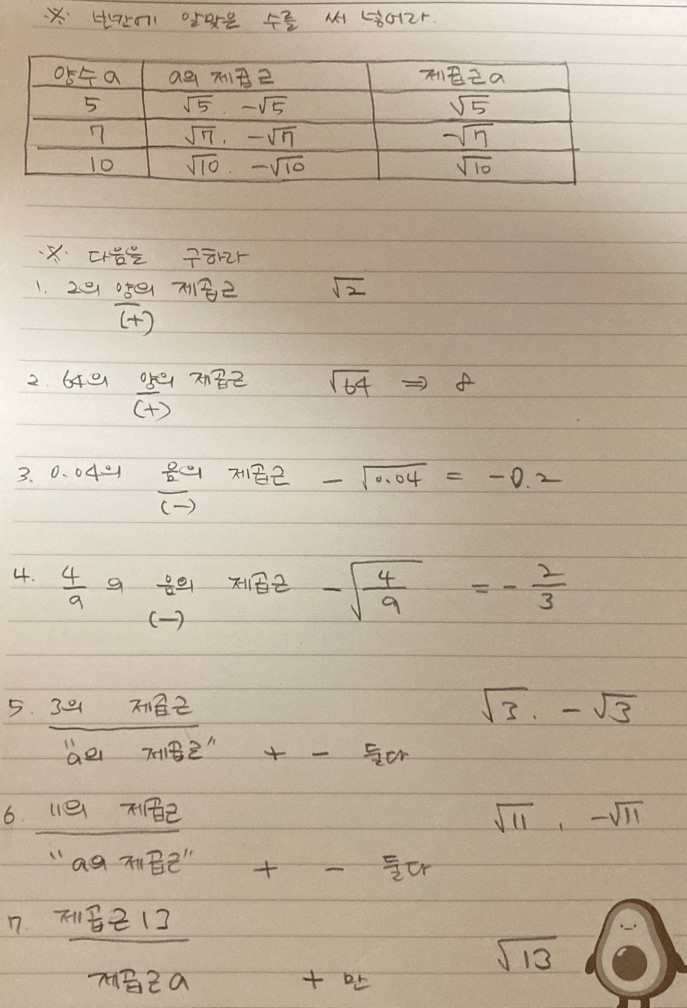 ※ 빈칸에 알맞은 수를 써 넣어라.
양수 a a의 제곱근 제곱근 a
5 √5. -√5 √5
7 √7. -√7 -√7
10 √10. -√10 √10
※ 다음을 구하라
1. 2의 양의 제곱근 √2
(+)
2. 64의 양의 제곱근 √64 ⇒ 8
(+)
3. 0.04의 음의 제곱근 - √0.04 = -0.2
(-)
4. 4/9 의 음의 제곱근 - √4/9 = - 2/3
(-)
5. 3의 제곱근 √3. - √3
"a의 제곱근" + - 둘다
6. 11의 제곱근 √11 , -√11
"a의 제곱근" + - 둘다
7. 제곱근 13 √13
제곱근 a + 만